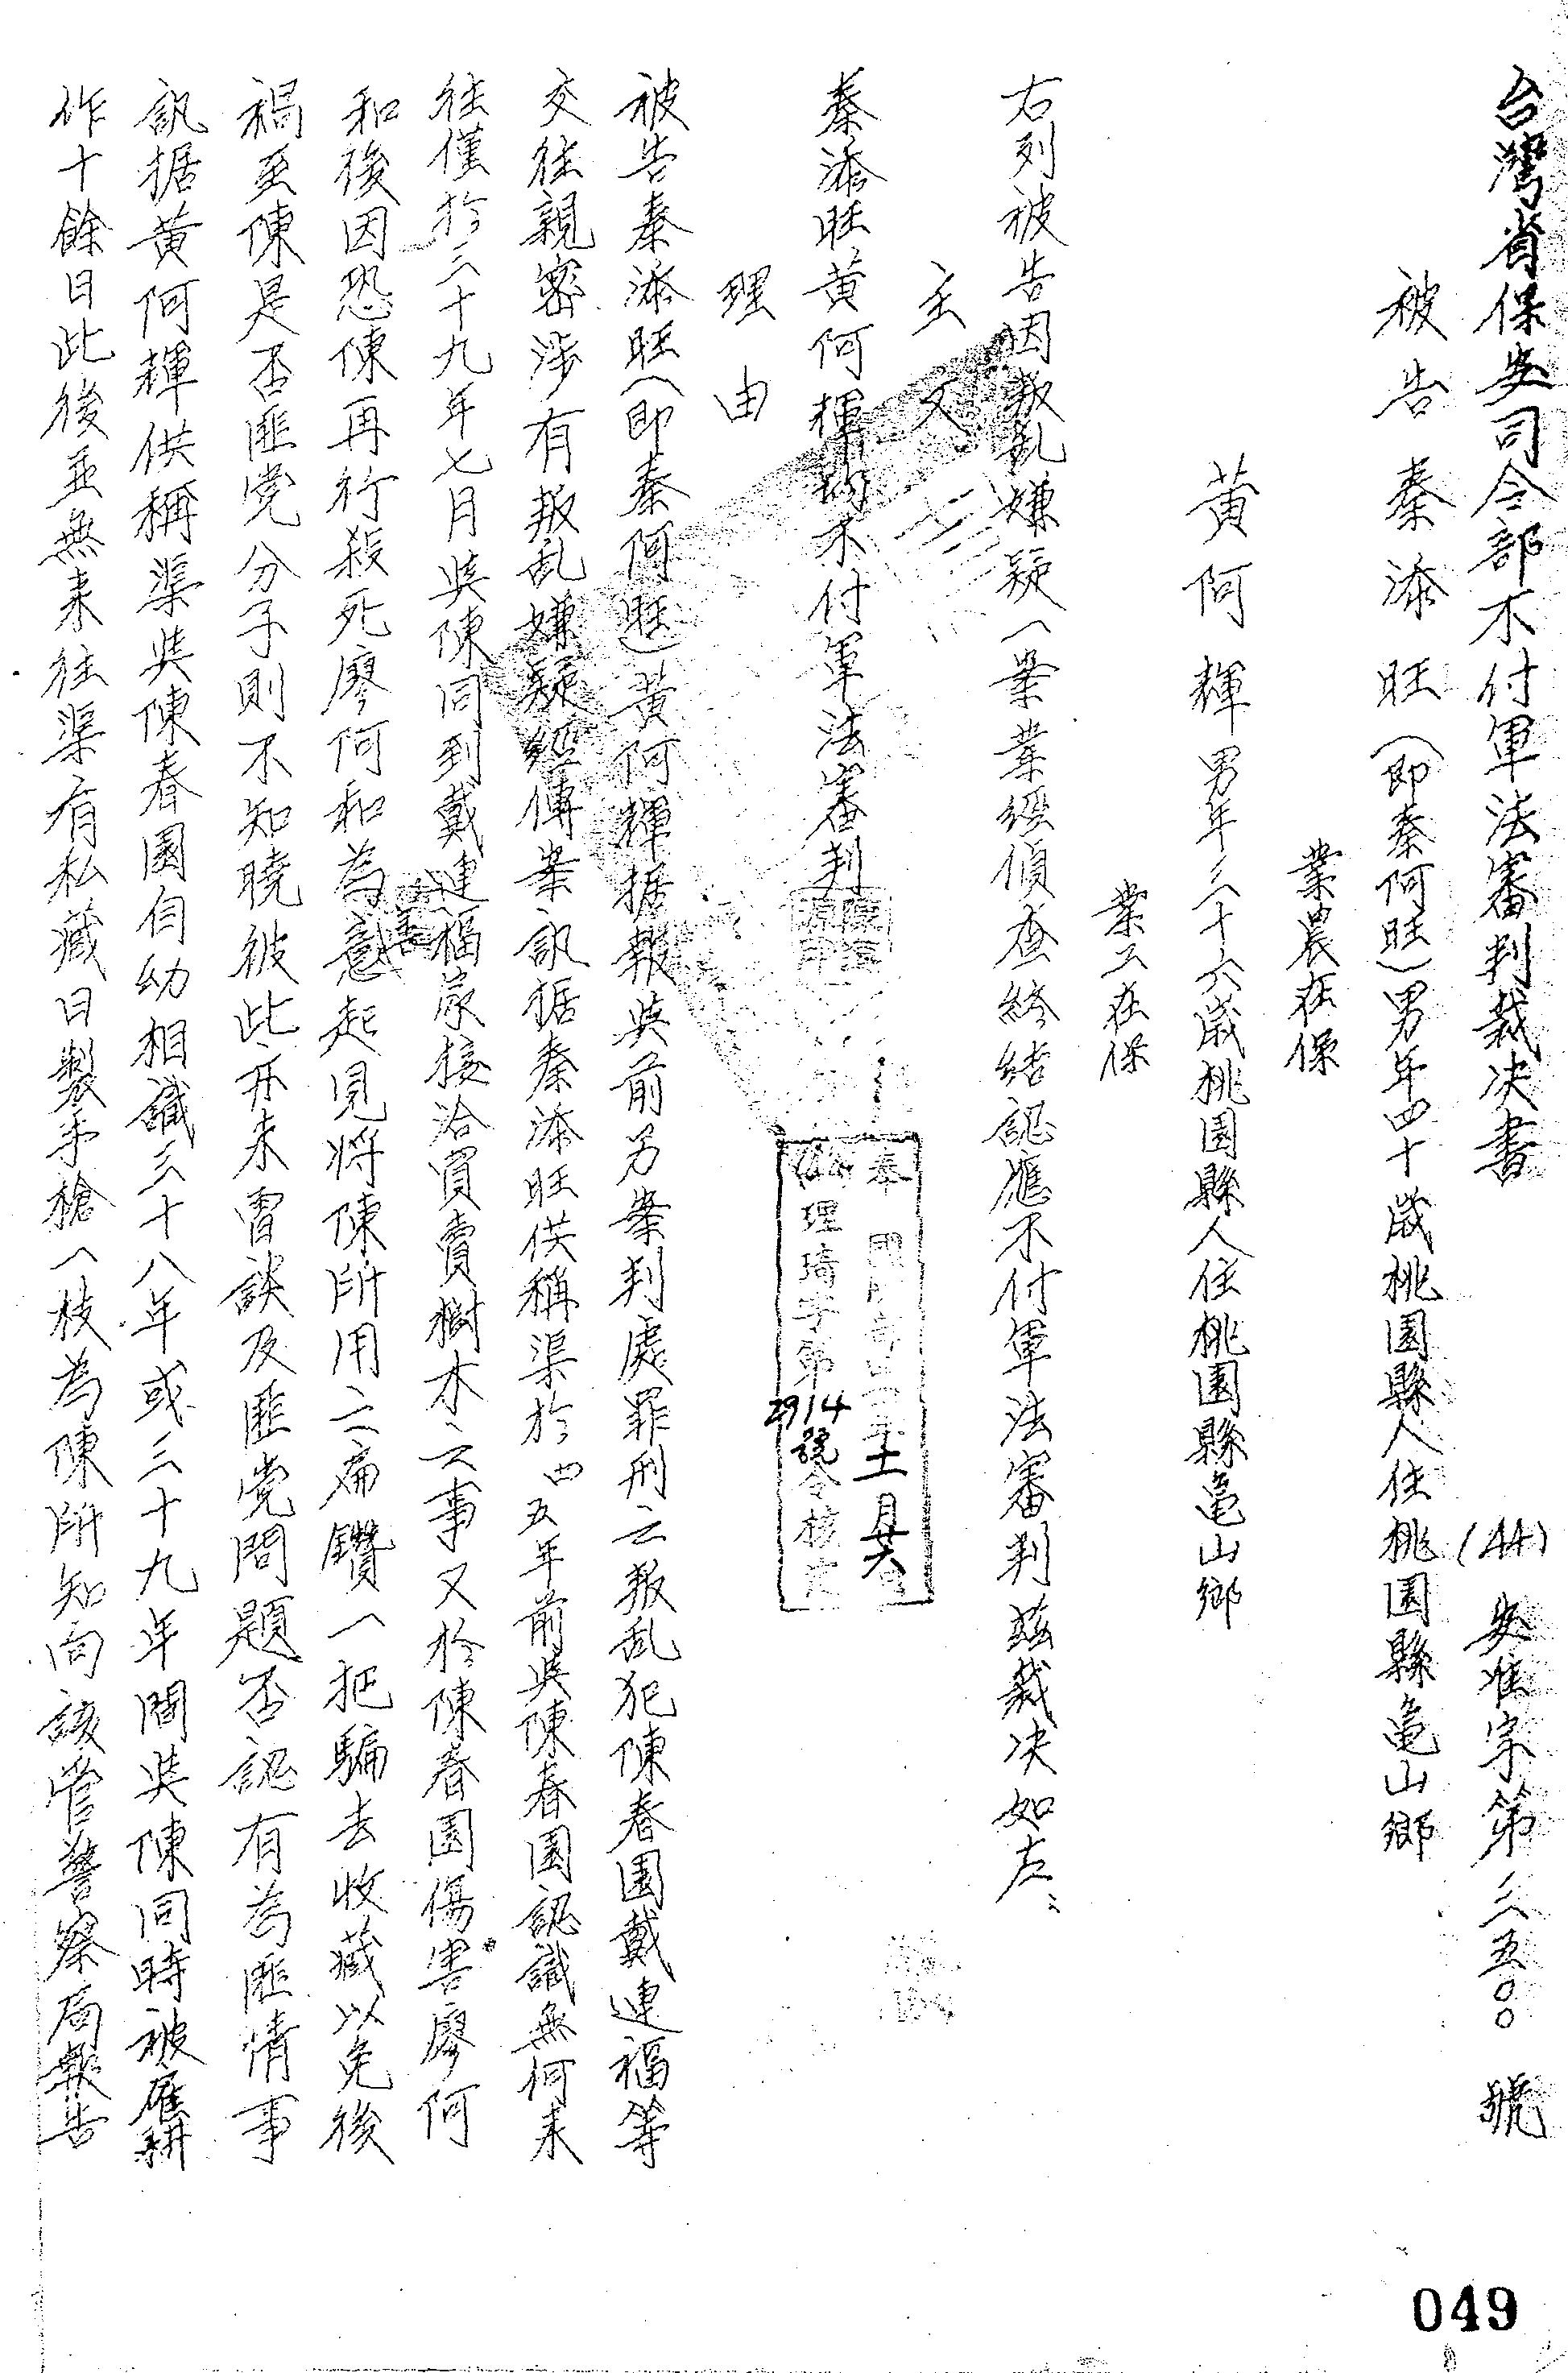 台灣省保安司令部不付軍法審判裁决書　(44)安准字第三五〇〇號
被告　秦添旺(即秦阿旺)男年四十歲桃園縣人住桃園縣龜山鄉
業農在保
黃阿輝男年三十六歲桃園縣人住桃園縣龜山鄉
業工在保
右列被告因叛乱嫌疑一案業經偵查終結認應不付軍法審判茲裁决如左：
主文
秦添旺黃阿輝均不付軍法審判
奉　國防部四十四年十一月廿六日
理琦字第2914號令核定
理由
被告秦添旺(即秦阿旺)黃阿輝据報與前另案判處罪刑之叛乱犯陳春園戴連福等
交往親密涉有叛乱嫌疑經傳案訊据秦添旺供稱渠於四五年前與陳春園認識無何來
往僅於三十九年七月與陳同到戴連福家接洽買賣樹木之事又於陳春園傷害廖阿
和後因恐陳再行殺死廖阿和為意起見將陳所用之扁鑽一把騙去收藏以免後
禍至陳是否匪党分子則不知曉彼此亦未曾談及匪党問題否認有為匪情事
訊据黃阿輝供稱渠與陳春園自幼相識三十八年或三十九年間與陳同時被雇耕
作十餘日此後並無來往渠有私藏日製手槍一枝為陳所知向該管警察局報告
049